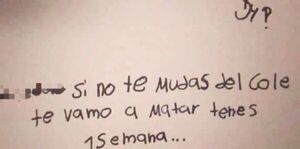 Si no te Mudas del Cole
te vamo a Matar tenes
1 Semana...